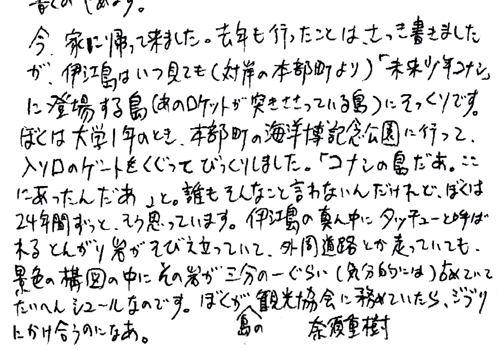 書くのやめます。
今、家に帰って来ました。去年も行ったことはさっき書きました
が、伊江島はいつ見ても(対岸の本部町より)「未来少年コナン」
に登場する島(あのロケットが突きささっている島)にそっくりです。
ぼくは大学1年のとき、本部町の海洋博記念公園に行って、
入り口のゲートをくぐってびっくりしました。「コナンの島だあ。ここ
にあったんだあ」と。誰もそんなこと言わないんだけれど、ぼくは
24年間ずっと、そう思っています。伊江島の真ん中にタッチューと呼ば
れるとんがり岩がそびえ立っていて、外周道路とか走っていても、
景色の構図の中にその岩が三分の一ぐらい(気分的には)占めていて
たいへんシュールなのです。ぼくが島の観光協会に務めていたら、ジブリ
にかけ合うのになあ。
奈須重樹